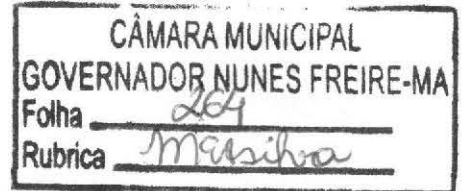 CÂMARA MUNICIPAL
GOVERNADOR NUNES FREIRE-MA
Folha 264
Rubrica